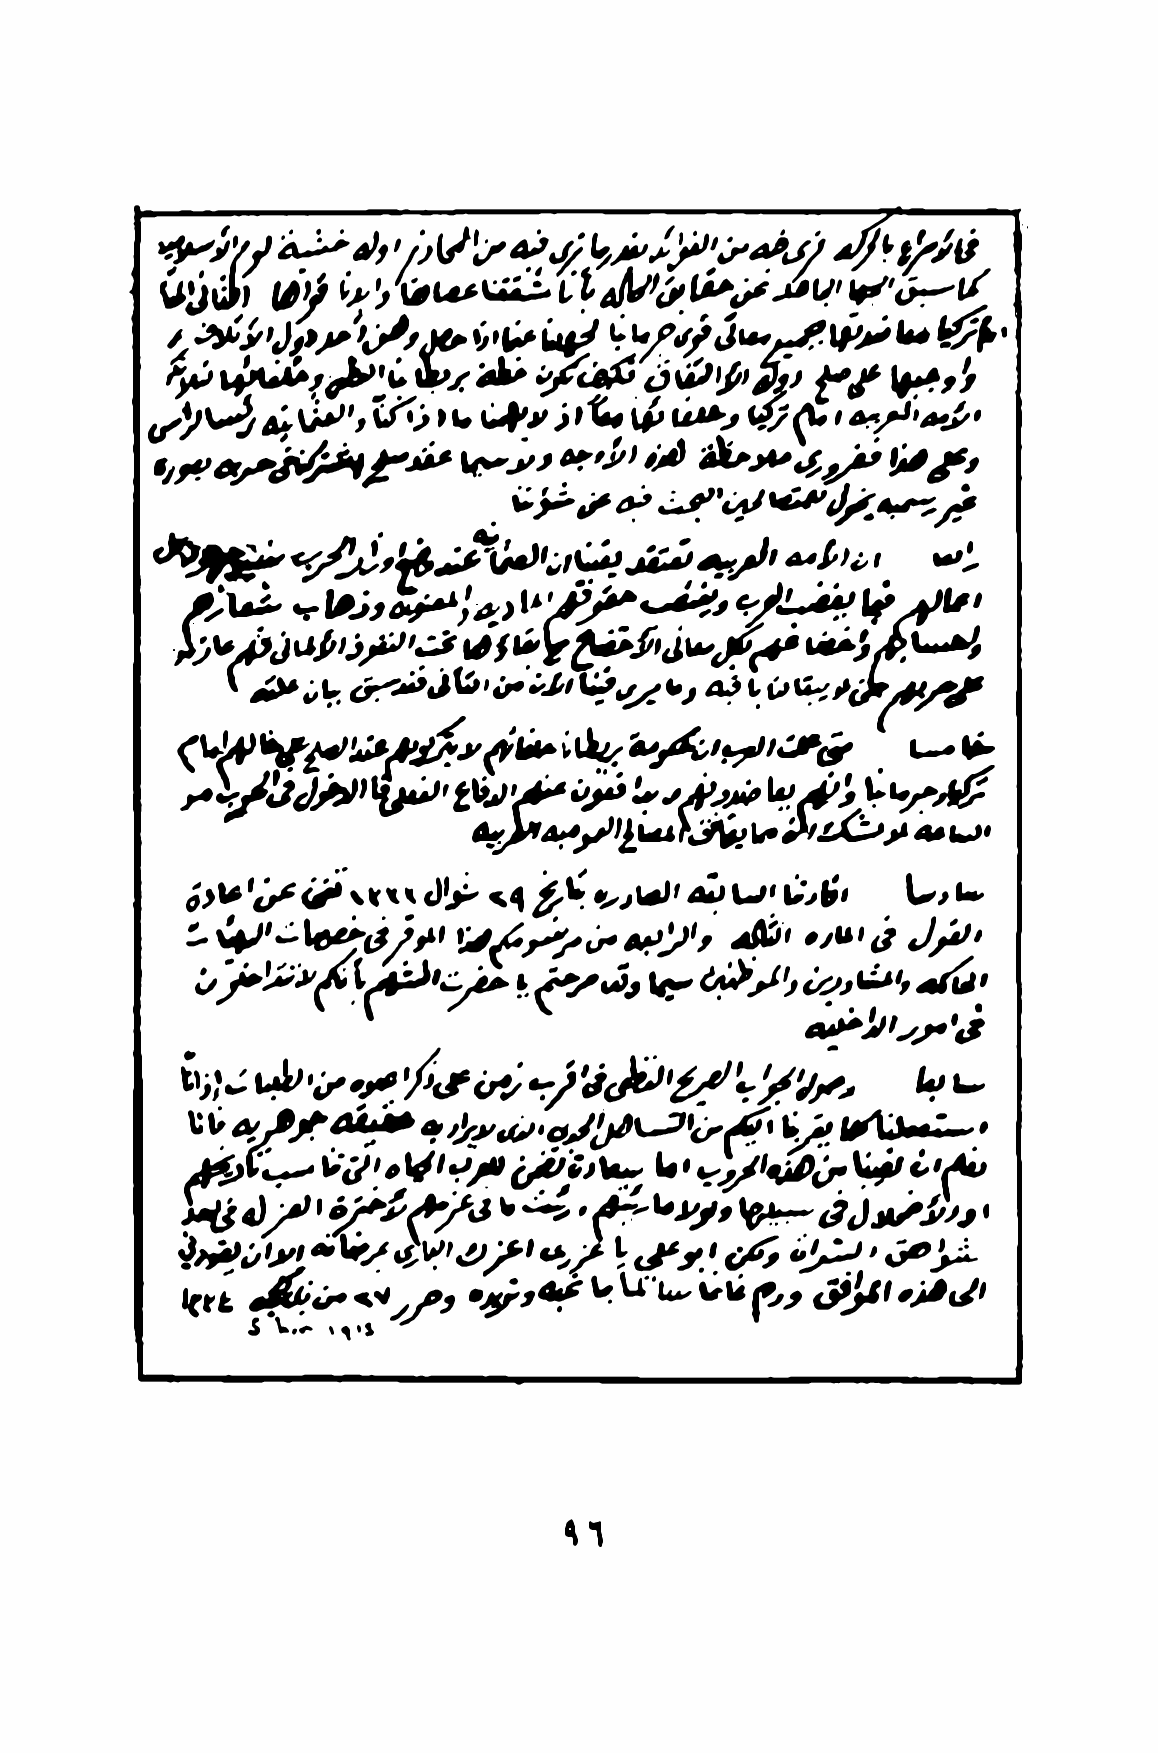 في الأسراع بالحركة نرى فيه من الفوائد بقدر ما نرى فيه من المحاذر اوله خشية لوم الأسلامية
كما سبق اليها الجاهلة عن حقايق الحال بأننا شققنا عصاها وابدنا قواها الثاني
امام تركيا معاضدتها بجميع معاني قوى جرمانيا لجهلنا عما اذا حصل وهن أحد دول الأئتلاف
وأوجبها على صلح دول الأتفاق فكيف تكون خطة بريطانيا العظمى وحلفائها
الأمه العربيه امام تركيا وحلفائها معاً اذ لا يهمنا ما اذا كنا والعثمانيه رئسا لرأس
وعلى هذا فضروري ملاحظة لهذه الأوجه ولا سيما عقد صلح حربه بصوره
غير رسميه يخول للمتصالحين البحث فيه عن شؤننا
رابعا ان الأمه العربيه تعتقد يقينا ان العثمانيه عند وضع اوزار الحرب
اعمالهم فيما يغضب العرب ويغضب حقوقهم الماديه والمعنويه وذهاب شعائرهم
واحسابهم واخضاعهم بكل معاني الأخضاع مع بقاؤها تحت النفوذ الألماني فهم عازمه
على حربهم حتى لا يبقا لنا باقيه وما يرى فينا الآن من التأني فقد سبق بيان علته
خامسا متى علمت العرب ان حكومة بريطانيا حلفائهم لا يتركونهم عند الصلح على حالهم امام
تركيا وجرمانيا وانهم يعاضدونهم ويدافعون عنهم الدفاع الفعلي فالدخول في الحرب من
الساعه لا شك انه مما يوافق المصالح العموميه العربيه
سادسا افادتنا السابقه الصادره بتاريخ ٢٩ شوال ١٣٣٣ تغني عن اعادة
القول في الماده الثالثه والرابعه من مرسومكم هذا الموقر في خصوصات الهيئات
الحاكمه والمشاورين والموظفين سيما وقد صرحتم يا حضرت الشهم بأنكم لا تتداخلون
في امور الداخليه
سابعا وصول الجواب الصريح القطعي في اقرب زمن على ذكر اعلاه من الطلبات
استعملنا كلما يقربنا اليكم من التساهل الحدي الذي لا يراد به حقيقه جوهريه فانا
نعلم ان نصيبنا من هذه الحروب اما سعادة تضمن للعرب الحياه التي تناسب تاريخهم
او الأضمحلال في سبيلها ولولا ما رأيتهم ما في عزمهم لأخترة العزله في احد
شواهق ولكن ابو على يا عزيزي اعزك الباري بمرضاته الا ان يقودني
الى هذه المواقق ودم غانما سالما بما تحبه وتريده وحرر ٢٧ من ذي الحجه ١٣٣٤
٩٦